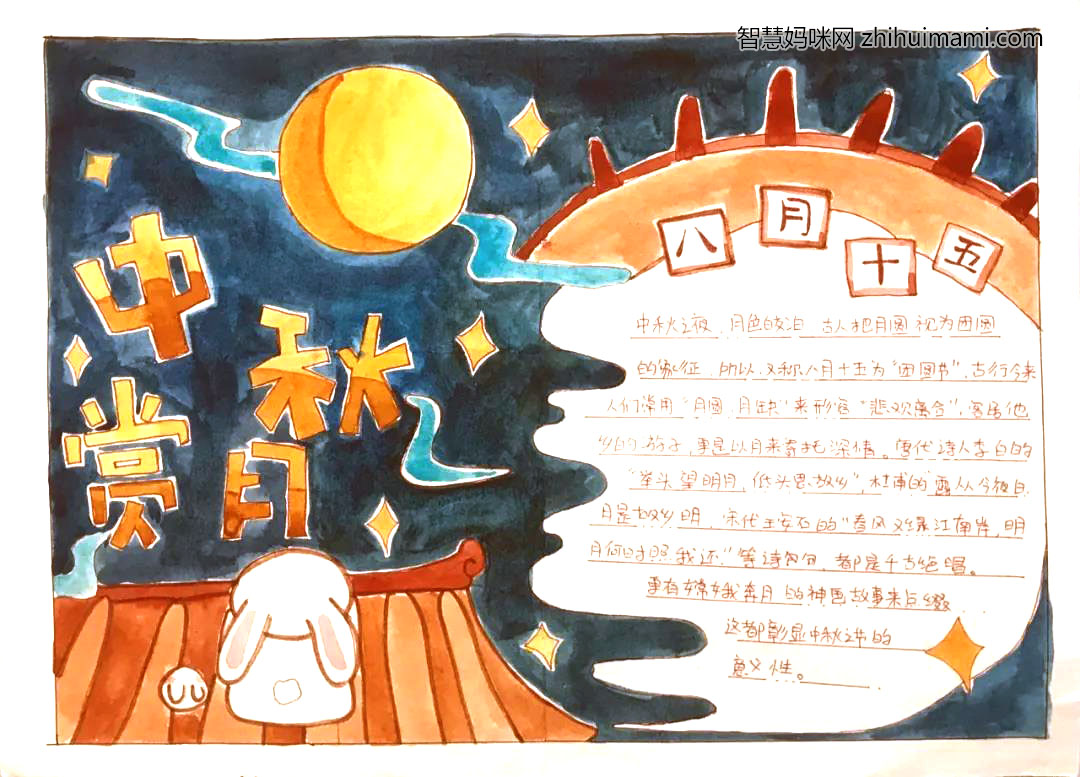 智慧妈咪网 zhihuimami.com
中秋
赏月
八月十五
中秋之夜,月色皎洁,古人把月圆视为团圆
的象征,所以,又称八月十五为"团圆节",古行今来
人们常用"月圆、月缺"来形容"悲欢离合",客居他
乡的游子,更是以月来寄托深情。唐代诗人李白的
"举头望明月,低头思故乡",杜甫的"露从今夜白
月是故乡明,宋代王安石的"春风又绿江南岸,明
月何时照我还"等诗句,都是千古绝唱。
更有嫦娥奔月的神话故事来点缀
这都彰显中秋之年的
意义性。